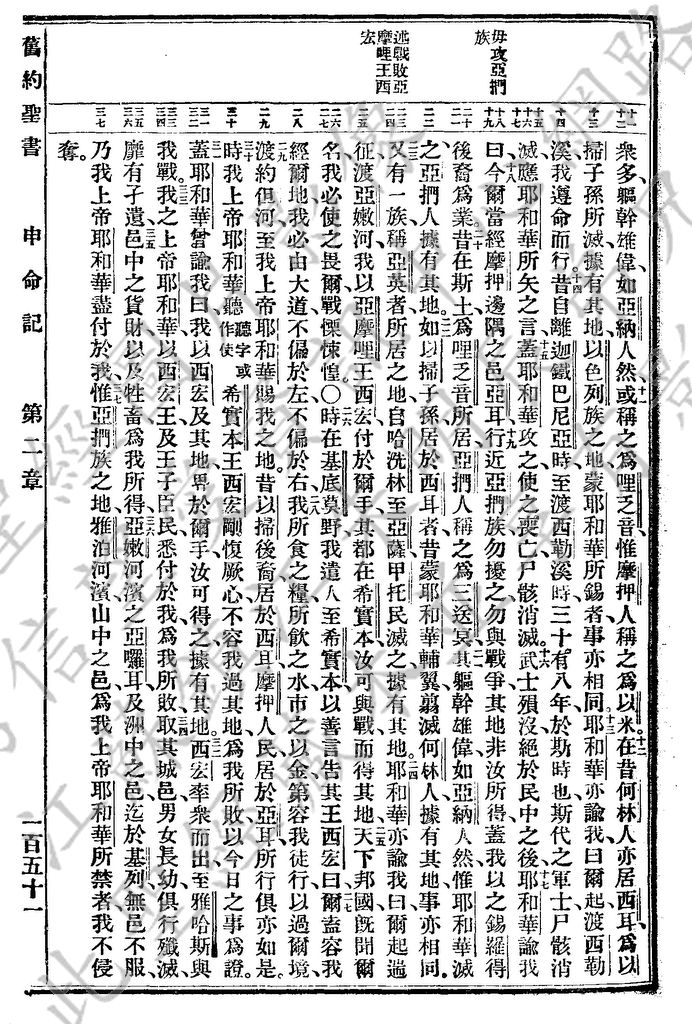 舊約聖書 申命記 第二章 一百五十一
毋攻亞捫
族
述戰敗亞
摩哩王西
宏
衆多軀幹雄偉如亞納人然或稱之爲哩乏音惟摩押人稱之爲以米在昔何林人亦居西耳爲以
掃子孫所滅據有其地以色列族之地蒙耶和華所錫者事亦相同耶和華亦諭我曰爾起渡西勒
溪我遵命而行昔自離迦鐵巴尼亞時至渡西勒溪時三十有八年於斯時也斯代之軍士尸骸消
滅應耶和華所矢之言蓋耶和華攻之使之喪亡尸骸消滅武士殞沒絕於民中之後耶和華諭我
曰今爾當經摩押邊隅之邑亞耳行近亞捫族勿擾之勿與戰爭其地非汝所得蓋我以之錫羅得
後裔爲業昔在斯土爲哩乏音所居亞捫人稱之爲三送冥其軀幹雄偉如亞納人然惟耶和華滅
之亞捫人據有其地如以掃子孫居於西耳者昔蒙耶和華輔翼翦滅何林人據有其地事亦相同
又有一族稱亞英者所居之地自哈洗林至亞薩甲托民滅之據有其地耶和華亦諭我曰爾起遄
征渡亞嫩河我以亞摩哩王西宏付於爾手其都在希實本汝可與戰而得其地天下邦國旣聞爾
名我必使之畏爾戰慄悚惶〇時在基底莫野我遣人至希實本以善言告其王西宏曰爾盍容我
經爾地我必由大道不偏於左不偏於右我所食之糧所飲之水市之以金第容我徒行以過爾境
渡約但河至我上帝耶和華賜我之地昔以掃後裔居於西耳摩押人民居於亞耳所行俱亦如是
時我上帝耶和華聽聽字或作使希實本王西宏剛愎厥心不容我過其地爲我所敗以今日之事爲證
蓋耶和華曾諭我曰我以西宏及其地畀於爾手汝可得之據有其地西宏率衆而出至雅哈斯與
我戰我之上帝耶和華以西宏王及王子臣民悉付於我爲我所敗取其城邑男女長幼俱行殲滅
靡有孑遺邑中之貨財以及牲畜爲我所得亞嫩河濱之亞囉耳及洲中之邑迄於基列無邑不服
乃我上帝耶和華盡付於我惟亞捫族之地雅泊河濱山中之邑爲我上帝耶和華所禁者我不侵
奪